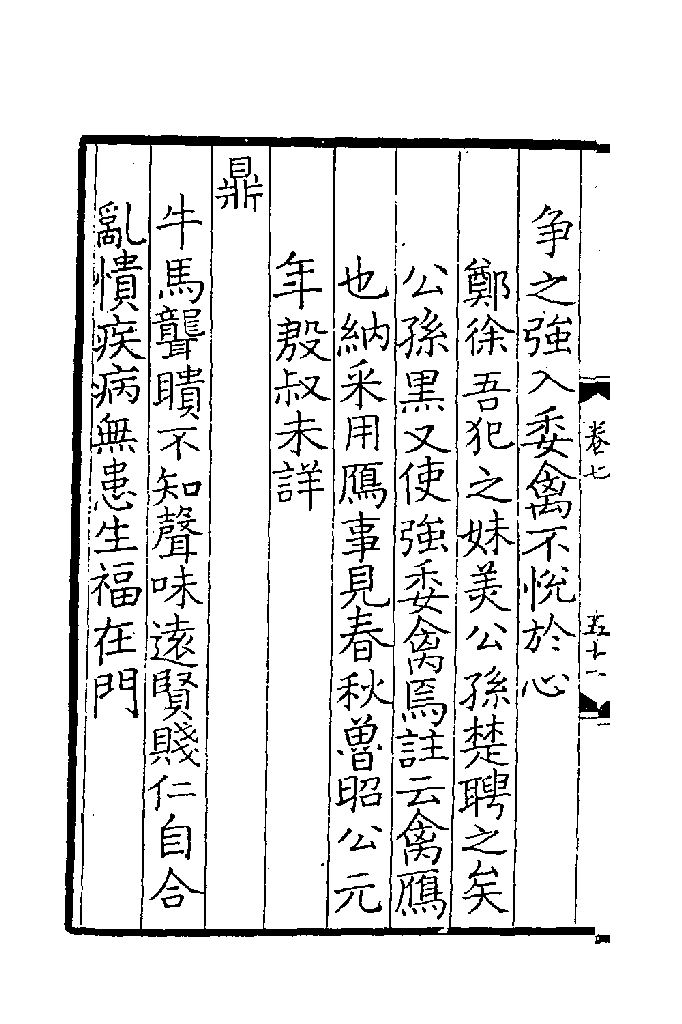 卷七
五十一
爭之強入委禽不悅於心
鄭徐吾犯之妹美公孫楚聘之矣
公孫黑又使強委禽焉註云禽鴈
也納采用鴈事見春秋魯昭公元
年殷叔未詳
鼎
牛馬聾瞶不知聲味遠賢賤仁自合
亂憒疾病無患生福在門